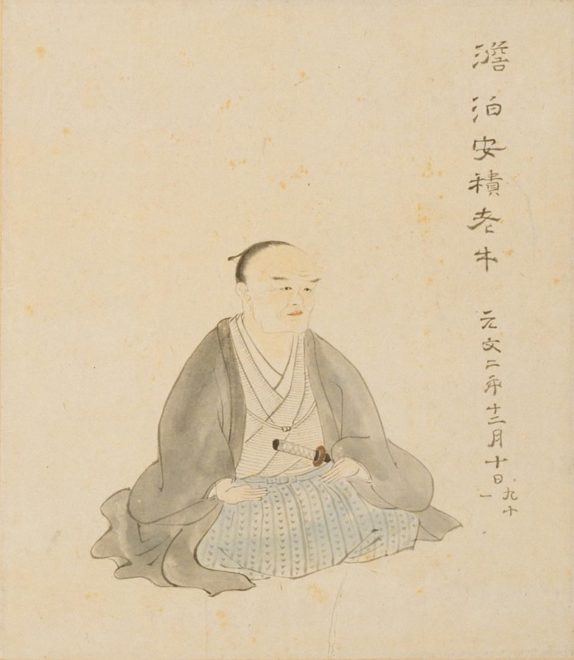 澹泊安積老牛 元文二年十二月十日